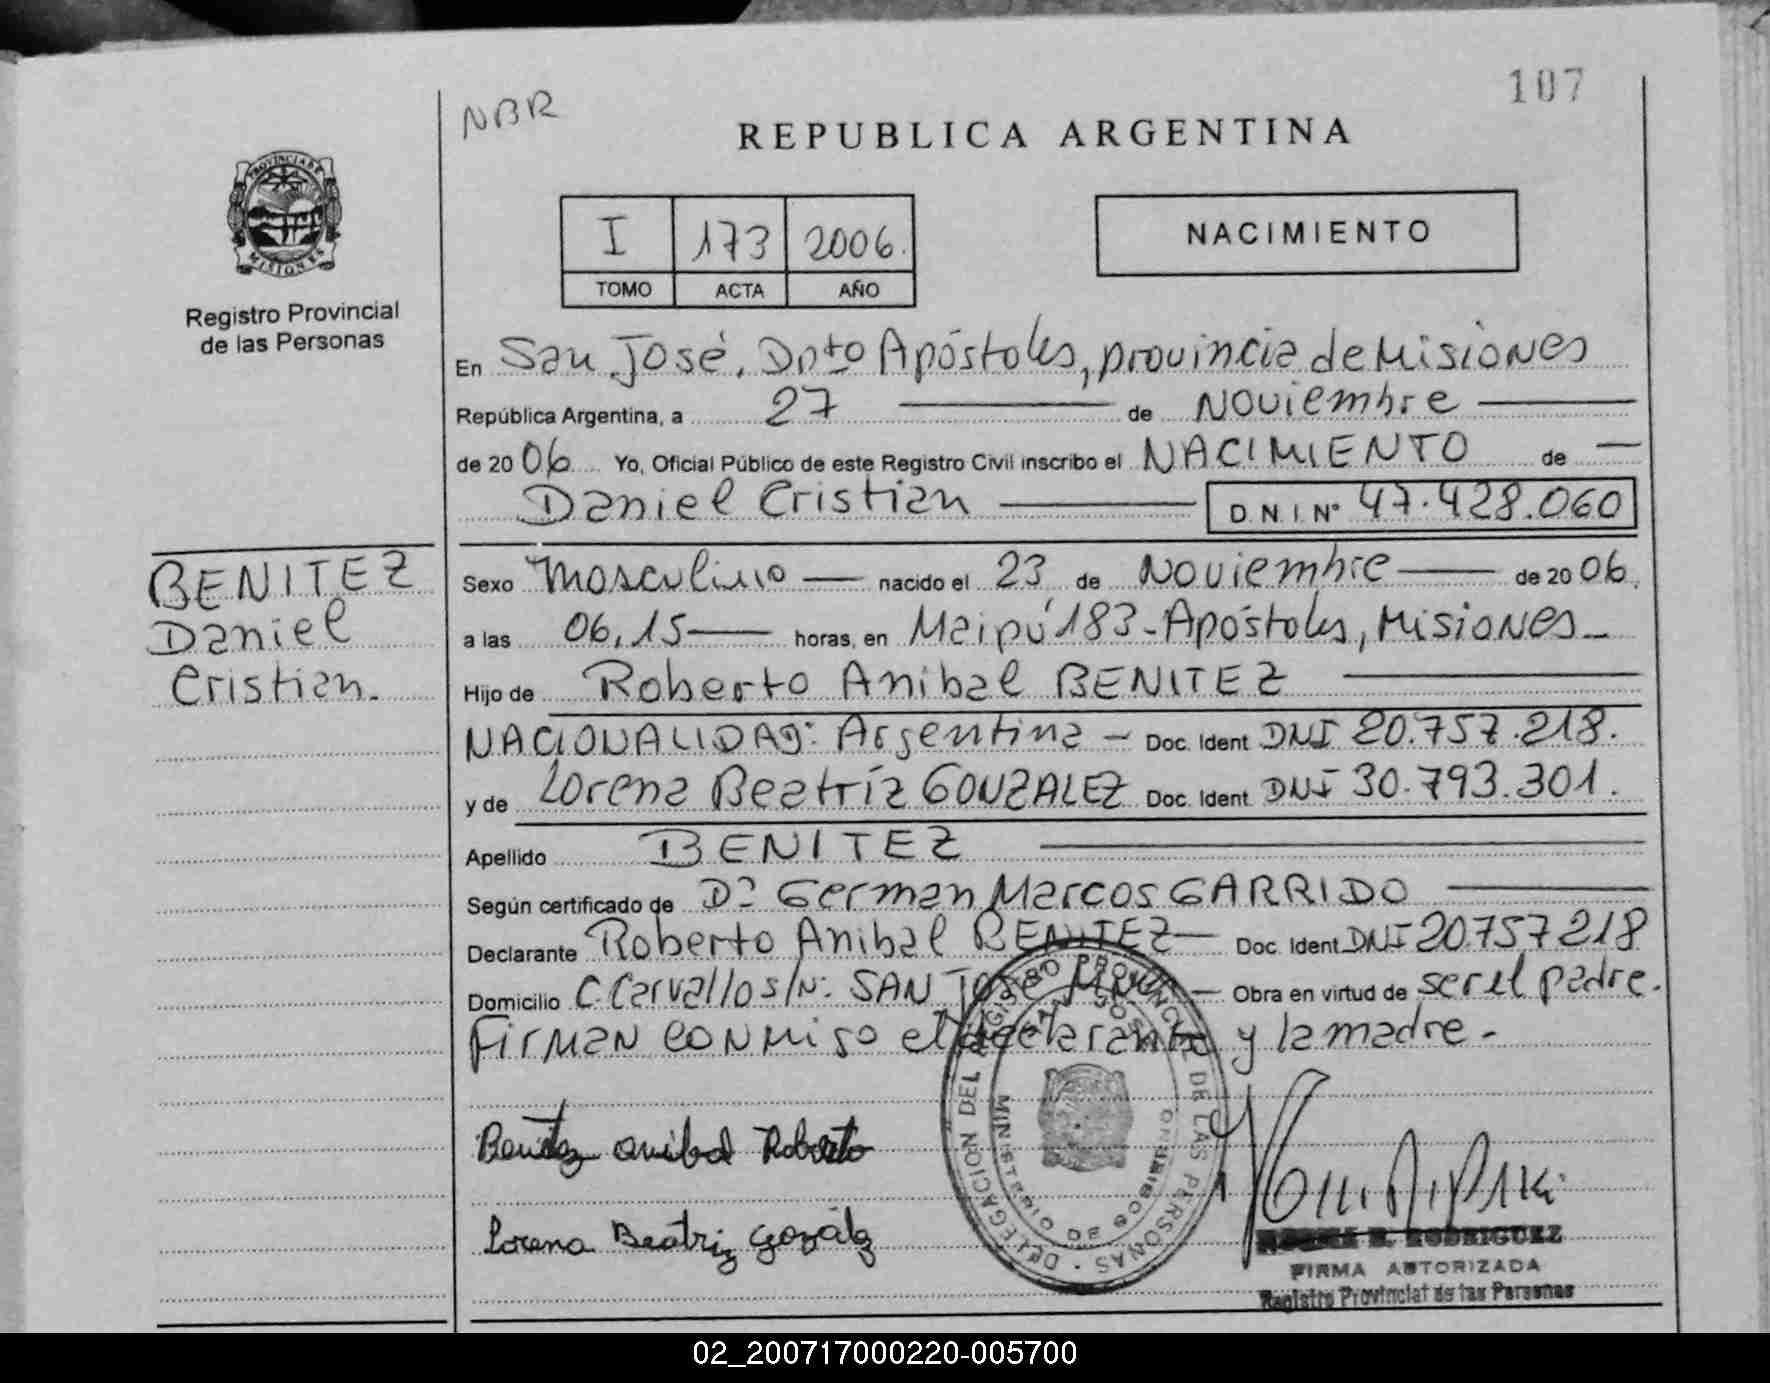 107
NBR
REPUBLICA ARGENTINA
PROVINCIA DE
MISIONES
Registro Provincial
de las Personas
I 173 2006.
TOMO ACTA AÑO
NACIMIENTO
En San José, Dpto Apóstoles, provincia de Misiones
República Argentina, a 27 de Noviembre
de 2006 Yo, Oficial Público de este Registro Civil inscribo el NACIMIENTO de
Daniel Cristian D.N.I. Nº 47.428.060
BENITEZ
Daniel
Cristian.
Sexo Masculino nacido el 23 de Noviembre de 2006.
a las 06,15 horas, en Maipú 183 - Apóstoles, Misiones -
Hijo de Roberto Anibal BENITEZ
NACIONALIDAD: Argentina - Doc. Ident. DNI 20.757.218.
y de Lorena Beatríz GONZALEZ Doc. Ident. DNI 30.793.301.
Apellido BENITEZ
Según certificado de Dr. German Marcos GARRIDO
Declarante Roberto Anibal BENITEZ Doc. Ident. DNI 20.757.218
Domicilio C. Carvallo s/Nº. SAN José Mnes - Obra en virtud de ser el padre.
Firman conmigo el declarante y la madre -
DELEGACION DEL REGISTRO PROVINCIAL DE LAS PERSONAS
SAN JOSE
MINISTERIO DE GOBIERNO
Benitez anibal Roberto
Lorena Beatriz Gozález
RODRIGUEZ
FIRMA AUTORIZADA
Registro Provincial de las Personas
02_200717000220-005700